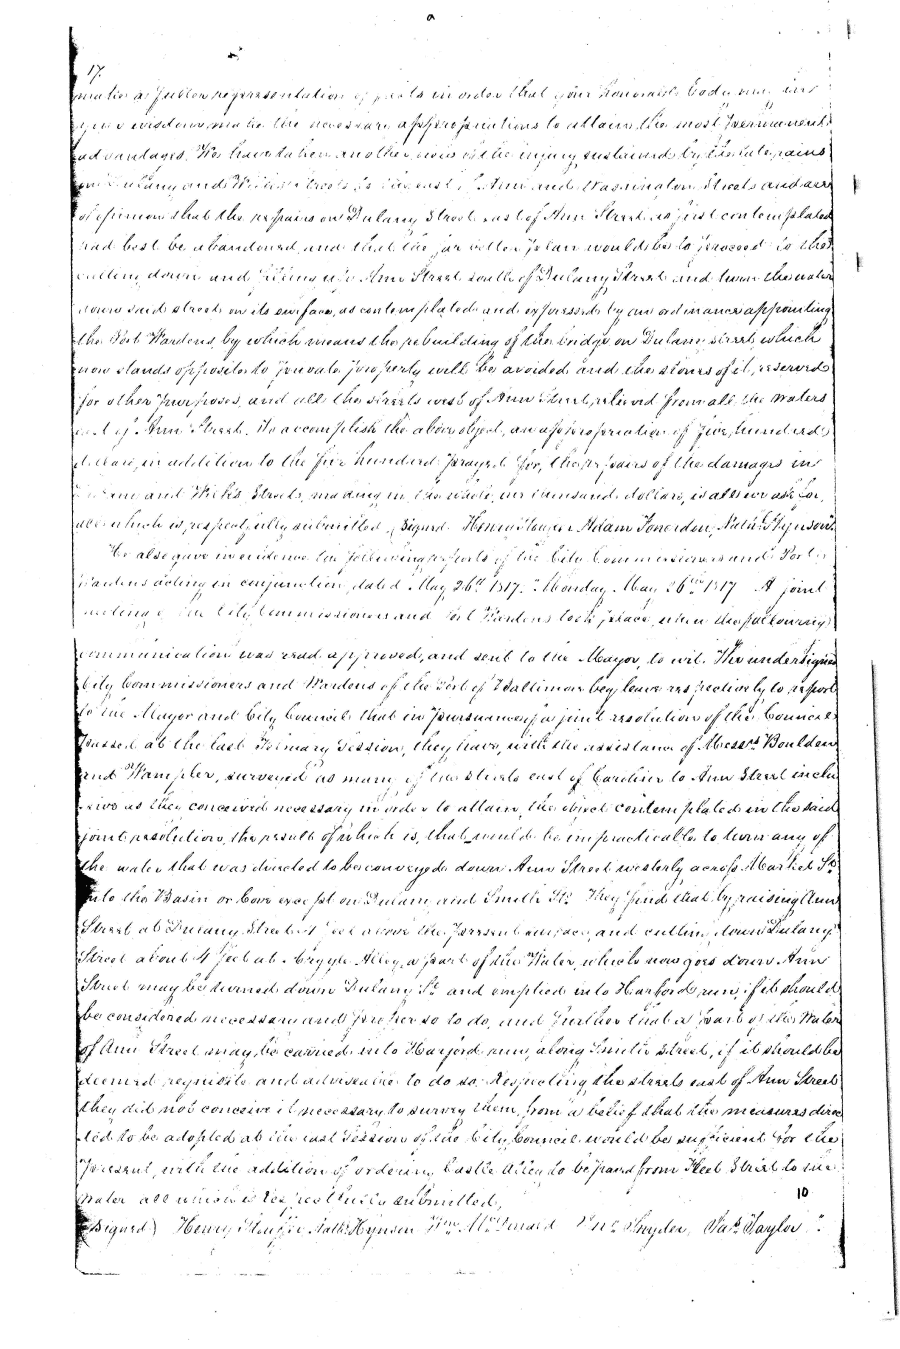 17.
make a fuller representation of facts in order that your honorable body may in
your wisdom make the necessary appropriations to attain the most permanent
advantages. We have taken another view of the injury sustained by the late rains
on Dulany and Wilks Streets to the east of Ann and Washington Streets and are
of opinion that the repairs on Dulany Street east of Ann Street as first contemplated
had best be abandoned and that the far better plan would be to proceed to the
cutting down and filling up Ann Street south of Dulany Street and turn the water
down said street on its surface, as contemplated and expressed by an ordinance appointing
the Port Wardens, by which means the rebuilding of the bridge on Dulany street, which
now stands opposite to private property will be avoided and the stones of it, reserved
for other purposes, and all the streets west of Ann Street, relieved from all the waters
east of Ann Street. To accomplish the above object, an appropriation of five hundred
dollars, in addition to the five hundred prayed for, the repairs of the damages in
and Wilks Streets, making in the whole, one thousand dollars, is all we ask for,
all which is respectfully submitted, (Signed. Henry Stouffer Adam Fonerden, Nathl. Hynson".
He also gave in evidence the following reports of the City Commissioners and Port
Wardens acting in conjunction, dated May 26th 1817. "Monday May 26th 1817 A joint
meeting of the City Commissioners and Port Wardens took place, when the following
communication was read approved, and sent to the Mayor, to wit. The undersigned
City Commissioners and Wardens of the Port of Baltimore beg leave respectively to report
to the Mayor and City Council that in pursuance of a joint resolution of the Council
passed at the last February Session, they have, with the assistance of Messrs Boulden
and Wampler, surveyed as many of the streets east of Caroline to Ann Street inclu
sive as they conceived necessary in order to attain the object contemplated in the said
joint resolution, the result of which is, that would be impracticable to turn any of
the water that was directed to be conveyed down Ann Street westerly across Market St.
into the Basin or Cove except on Dulany and Smith Sts. They find that by raising Ann
Street at Dulany Street 4 feet above the present surface, and cutting down Dulany
Street about 4 feet at Argyle Alley, a part of the Water, which now goes down Ann
Street may be turned down Dulany St. and emptied into Harford run, if it should
be considered necessary and proper so to do, and further that a part of the Water
of Ann Street may be carried into Harford run, along Smith Street, if it should be
deemed requisite and adviseable to do so. Respecting the streets east of Ann Street
they did not conceive it necessary to survey them, from a belief that the measures direc
-ted to be adopted at the last Session of the City Council would be sufficient for the
present, with the addition of ordering Castle Alley to be paved from Fleet Street to the
water all which is respectfully submitted,
10
(Signed) Henry Stouffer, Nathl. Hynson Wm McDonald Jno. Snyder, Jas. Taylor".